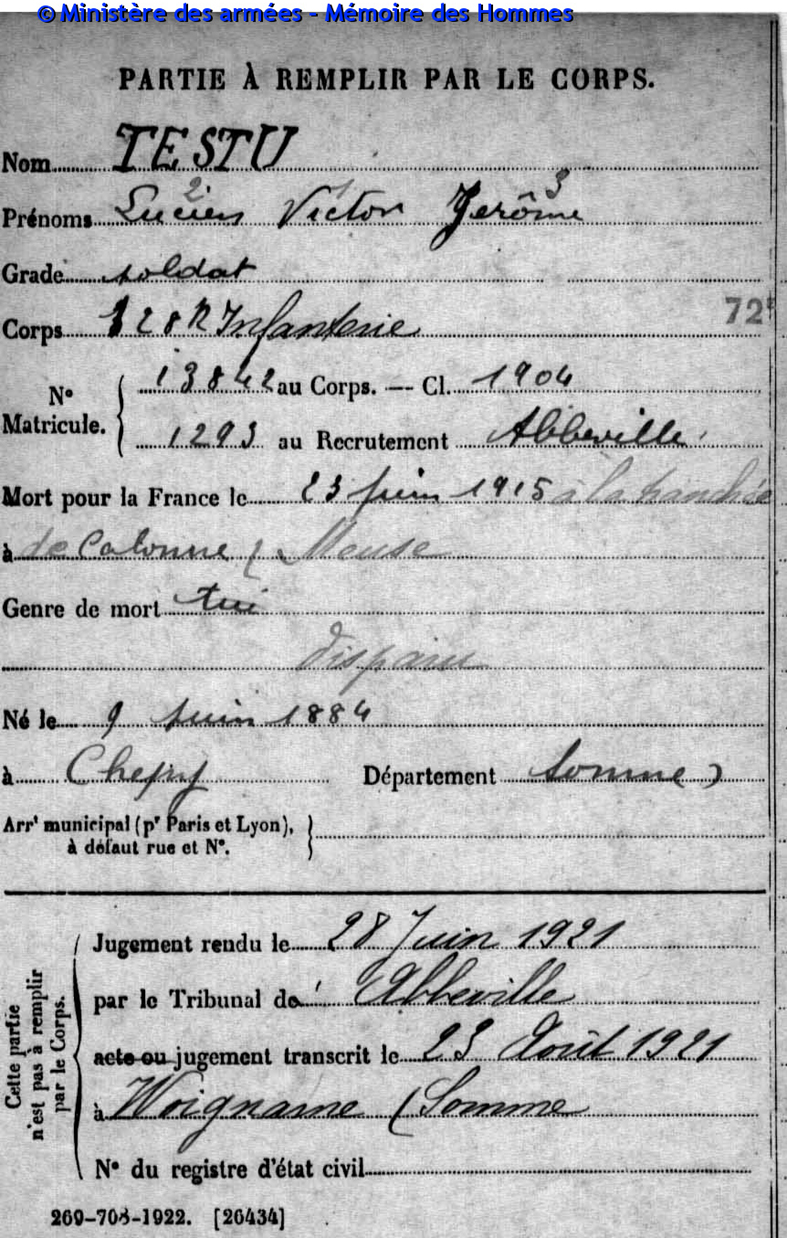 © Ministère des armées - Mémoire des Hommes
PARTIE À REMPLIR PAR LE CORPS.
Nom TESTU
2 1 3
Prénoms Lucien Victor Jerôme
Grade soldat
Corps 128 R Infanterie 72e
N° Matricule. 13842 au Corps. — Cl. 1904
1293 au Recrutement Abbeville
Mort pour la France le 23 juin 1915 à la tranchée
à de Calonne (Meuse
Genre de mort tué
disparu
Né le 9 juin 1884
à Chepy Département Somme)
Arrt municipal (pr Paris et Lyon),
à défaut rue et N°.
Cette partie
n'est pas à remplir
par le Corps.
Jugement rendu le 28 Juin 1921
par le Tribunal de Abbeville
acte ou jugement transcrit le 23 Août 1921
à Woignarue (Somme
N° du registre d'état civil
269-708-1922. [26434]